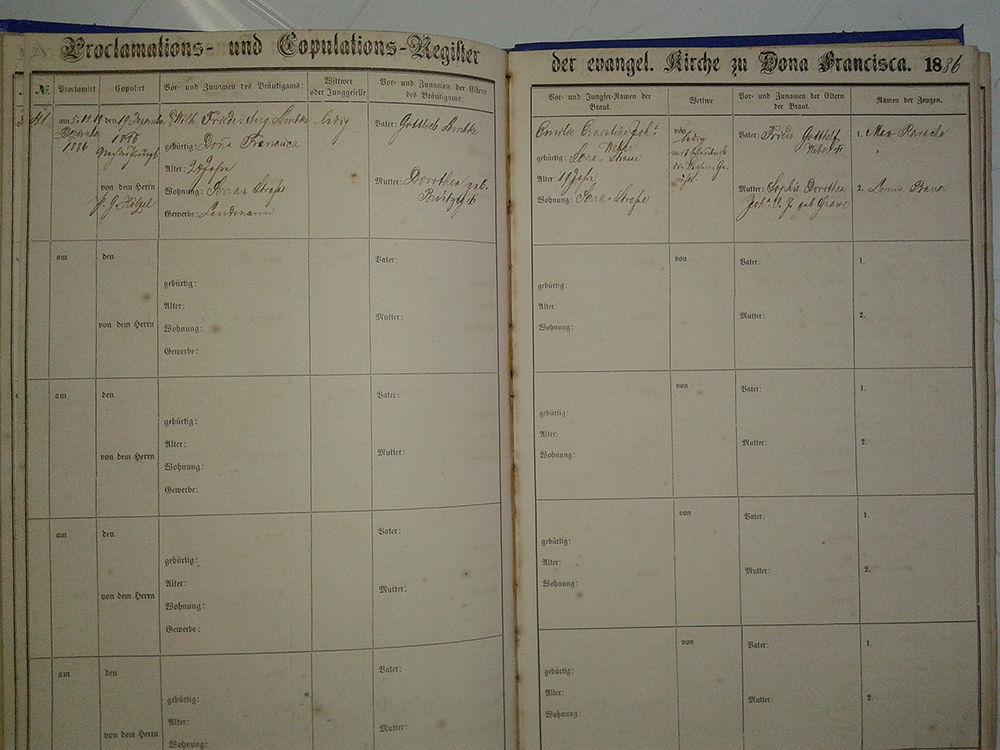 Proclamations- und Copulations-Register
№
Proclamirt
Copulirt
Vor- und Zunamen des Bräutigams:
Wittwer
oder Junggeselle
Vor- und Zunamen der Eltern
des Bräutigams:
41
am 5. 12. 19
Dezember
1886
den 19 Dezember
1886
von dem Herrn
Wilh. Friedr. Aug. Lembke
gebürtig: Dona Francisca
Alter: 24 Jahre
Wohnung: Straße
Gewerbe: Landmann
ledig
Vater: Gottlieb Lembke
Mutter: Dorothea geb.
am
den
von dem Herrn
gebürtig:
Alter:
Wohnung:
Gewerbe:
Vater:
Mutter:
am
den
von dem Herrn
gebürtig:
Alter:
Wohnung:
Gewerbe:
Vater:
Mutter:
am
den
von dem Herrn
gebürtig:
Alter:
Wohnung:
Gewerbe:
Vater:
Mutter:
am
den
von dem Herrn
gebürtig:
Alter:
Wohnung:
Vater:
Mutter:
der evangel. Kirche zu Dona Francisca. 1886
Vor- und Jungfer-Namen der
Braut.
Wettwe
Vor- und Zunamen der Eltern
der Braut.
Namen der Zeugen.
Emilie Ernestine Joh.
gebürtig: Straße
Alter: Jahr
Wohnung: Straße
von
ledig
Vater: Friedr. Gottlieb
Mutter: Sophie Dorothea
geb
1. Max
2. Louis
von
gebürtig:
Alter:
Wohnung:
Vater:
Mutter:
1.
2.
von
gebürtig:
Alter:
Wohnung:
Vater:
Mutter:
1.
2.
von
gebürtig:
Alter:
Wohnung:
Vater:
Mutter:
1.
2.
von
gebürtig:
Alter:
Wohnung:
Vater:
Mutter:
1.
2.